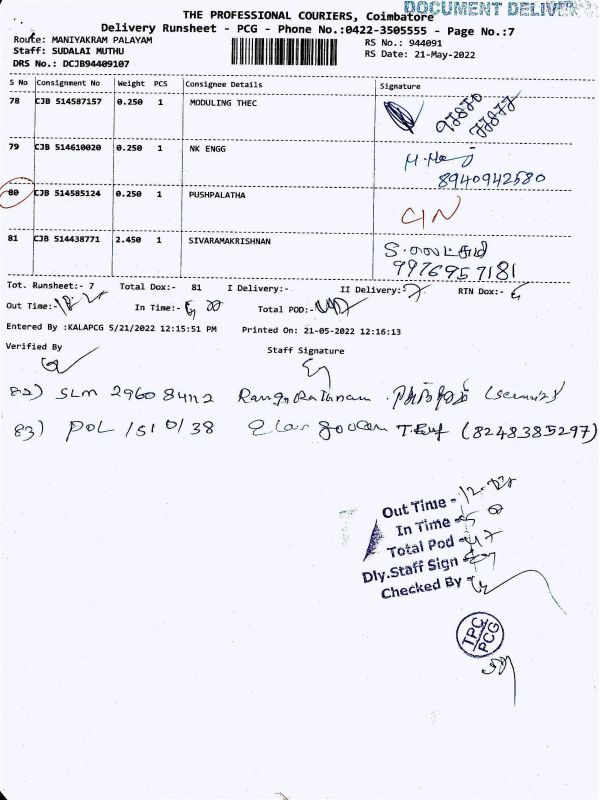 DOCUMENT DELIVER
THE PROFESSIONAL COURIERS, Coimbatore
Delivery Runsheet - PCG - Phone No.:0422-3505555 - Page No.:7
Route: MANIYAKRAM PALAYAM
RS No.: 944091
Staff: SUDALAI MUTHU
RS Date: 21-May-2022
DRS No.: DCJB94409107
S No Consignment No Weight PCS Consignee Details Signature
78 CJB 514587157 0.250 1 MODULING THEC
79 CJB 514610020 0.250 1 NK ENGG
8940942580
80 CJB 514585124 0.250 1 PUSHPALATHA
81 CJB 514438771 2.450 1 SIVARAMAKRISHNAN
9976957181
Tot. Runsheet:- 7 Total Dox:- 81 I Delivery:- II Delivery:- RTN Dox:-
Out Time:- In Time:- Total POD:-
Entered By :KALAPCG 5/21/2022 12:15:51 PM Printed On: 21-05-2022 12:16:13
Verified By Staff Signature
82) SLM 296084112
83) POL 1510138 (8248385297)
Out Time -
In Time -
Total Pod - 47
Dly.Staff Sign -
Checked By -
TPC
PCG